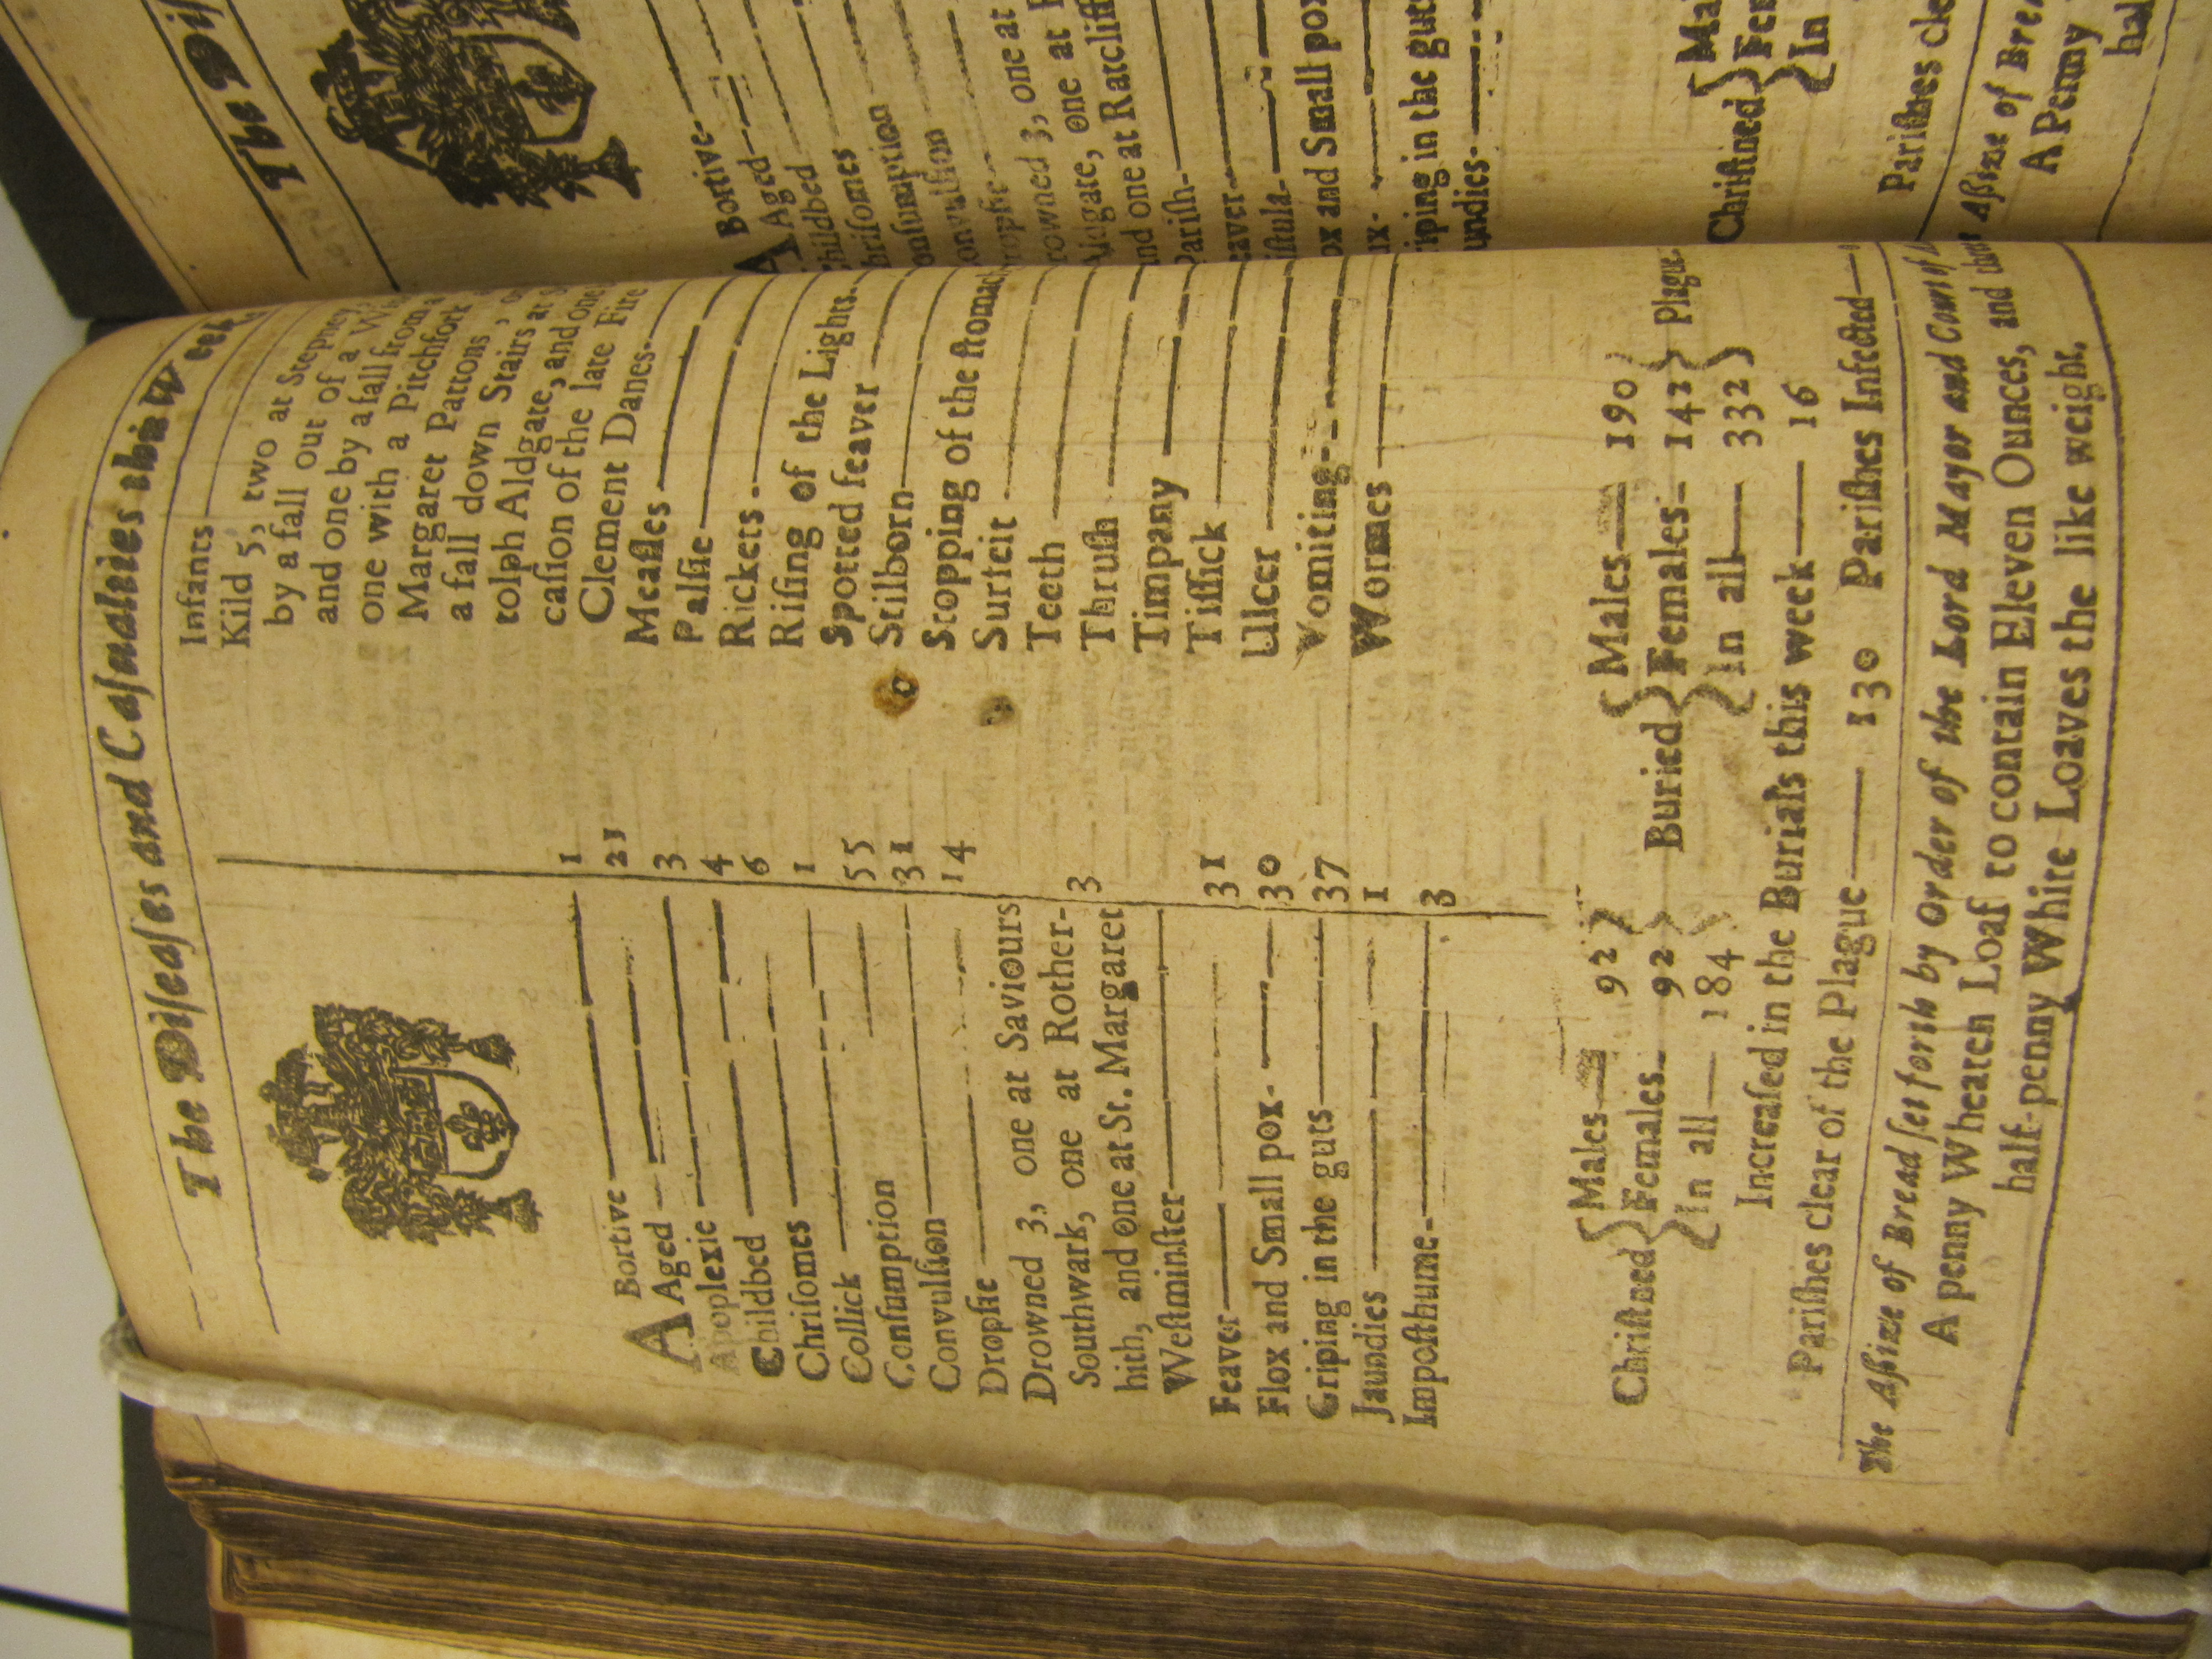 The Diseaſes and Caſualties this Week
ABortive 1
Aged 21
Apoplexie 3
Childbed 4
Chriſomes 6
Collick 1
Conſumption 55
Convulſion 31
Dropſie 14
Drowned 3, one at Saviours
Southwark, one at Rother-
hith, and one at St. Margaret
Weſtminſter 3
Feaver 31
Flox and Small pox 30
Griping in the guts 37
Jaundies 1
Impoſthume 3
Infants
Kild 5, two at Stepney
by a fall out of a
and one by a fall from a
one with a Pitchfork
Margaret Pattons,
a fall down Stairs at
tolph Aldgate, and one
caſion of the late Fire
Clement Danes
Meaſles
Palſie
Rickets
Riſing of the Lights
Spotted feaver
Stilborn
Stopping of the ſtomach
Surfeit
Teeth
Thruſh
Timpany
Tiſſick
Ulcer
Vomiting
Wormes
Chriſtned { Males 92 Females 92 In all 184 }
Buried { Males 190 Females 142 In all 332 } Plague
Increaſed in the Burials this week 16
Pariſhes clear of the Plague 130 Pariſhes Infected
The Aſſize of Bread ſet forth by Order of the Lord Mayor and Court of
A penny Wheaten Loaf to contain Eleven Ounces, and three
half-penny White Loaves the like weight.
The
ABortive
Aged
Childbed
Chriſomes
Conſumption
Convulſion
Dropſie
Drowned 3, one at
Algate, one at
and one at Ratcliff
Pariſh
Feaver
Fiſtula
Flox and Small pox
Griping in the guts
Jaundies
Chriſtned
In
Pariſhes
Aſſize of
A Penny